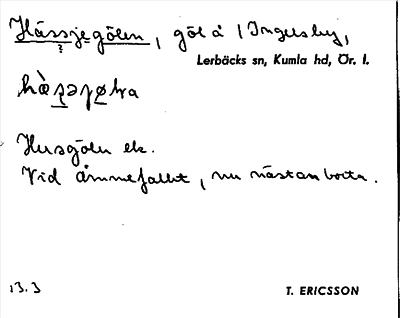 Hässjegölen, göl å 1 Ingelsby,
Lerbäcks sn, Kumla hd, Ör. l.
Husgölen ek.
Vid åmmefallet, nu nästan borta.
13.3
T. ERICSSON